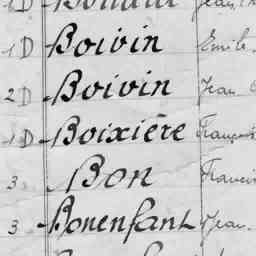 1D Boivin Emile
2D Boivin Jean
1D Boixière François
3 Bon Francis
3 Bonenfant Jean